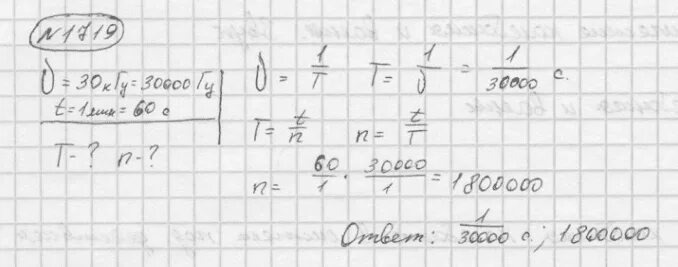 №1719
υ = 30кГц = 30000Гц
t = 1мин = 60 с
T - ? n - ?
υ = 1/T T = 1/υ = 1/30000 с.
T = t/n n = t/T
n = 60/1 · 30000/1 = 1800000
Ответ: 1/30000 с.; 1800000